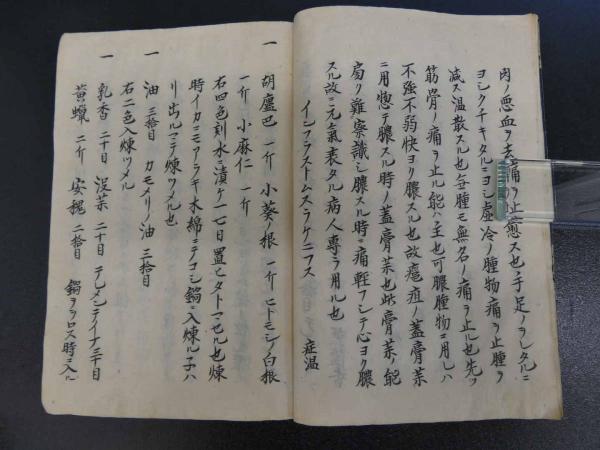 肉ノ悪血ヲ去痛ヲ止癒ス也手足ノヲレタルニ
ヨシクチキタルニヨシ虚冷ノ腫物痛ヲ止腫ヲ
减ス温散スル也毎腫モ無名ノ痛ヲ止ル也先ツ
筋骨ノ痛ヲ止ル能ハ主也可膿腫物ニ用レハ
不強不弱快ヨリ膿スル也故瘡疽ノ蓋膏菜
ニ用惣テ膿スル時ノ蓋膏菜也此膏菜ノ能
扄リ難察識シ膿スル時ニ痛軽フシテ心ヨク膿
スル故ニ元氣衰タル病人専ラ用ル也
インフラストムスラケニフス 症温
一 胡廬巴 一斤 小葵ノ根 一斤 ヒトモシノ白根
一斤 小麻仁 一斤
右四色刻水ニ漬ケ一七日置ヒタトマセル也煉
時イカニモアラキ水綿ニテコシ鍋ニ入煉ル子ハ
リ出ルマテ煉ツメル也
一 油 三拾目 カモメリノ油 三拾目
右二色入煉ツメル
一 乳香 二十目 没茶 二十目 テレメンテイナ二十目
黄蠟 二斤 安穐 二拾目 鍋ヲヲロス時ニ入ル